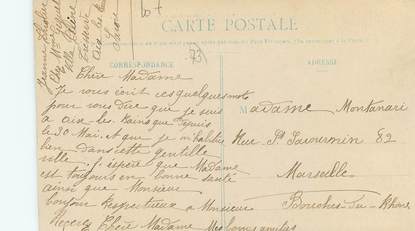 CARTE POSTALE
CORRESPONDANCE
ADRESSE
73
Chère Madame
Je vous écrit ces quelques mots
pour vous dire que je suis
à aix-les-Bains depuis
le 30 Mai. et que je m'habitue
bien dans cette gentille
ville. j'espère que Madame
est toujours en bonne santé
ainsi que Monsieur
bonjour respectueux a Monsieur
Recevez Chère Madame mes
Madame Montanari
Rue St Savournin 82
Marseille
Bouches-du-Rhône
Jeanne
Chez Mme
Villa
Aix les
Savoie